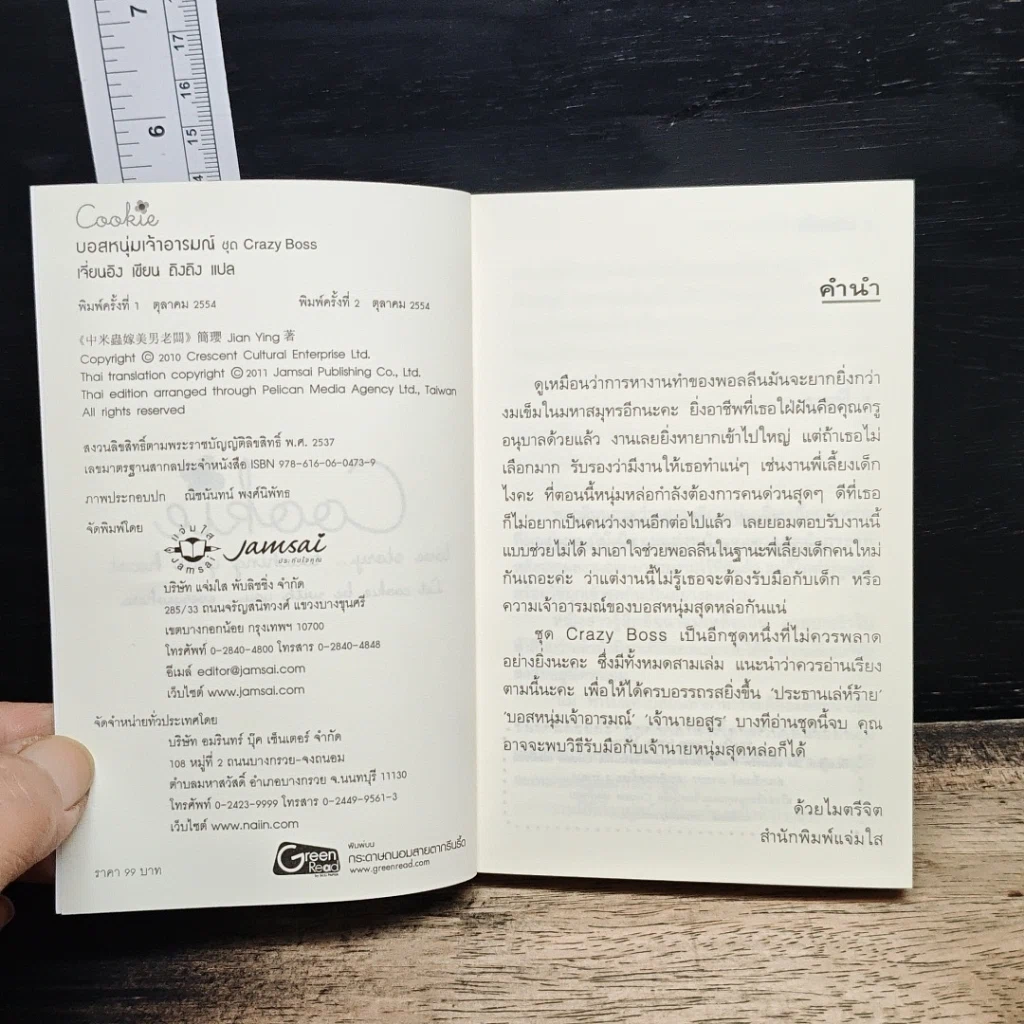 7
6
17
16
15
Cookie
บอสหนุ่มเจ้าอารมณ์ ชุด Crazy Boss
เจี่ยนอิง เขียน ถิงถิง แปล
พิมพ์ครั้งที่ 1 ตุลาคม 2554 พิมพ์ครั้งที่ 2 ตุลาคม 2554
《中米蟲嫁美男老闆》簡瓔 Jian Ying 著
Copyright © 2010 Crescent Cultural Enterprise Ltd.
Thai translation copyright © 2011 Jamsai Publishing Co., Ltd.
Thai edition arranged through Pelican Media Agency Ltd., Taiwan
All rights reserved
สงวนลิขสิทธิ์ตามพระราชบัญญัติลิขสิทธิ์ พ.ศ. 2537
เลขมาตรฐานสากลประจำหนังสือ ISBN 978-616-06-0473-9
ภาพประกอบปก ณิชนันทน์ พงศ์นิพัทธ
จัดพิมพ์โดย
แจ่มใส
Jamsai
Jamsai
ประทับใจคุณ
บริษัท แจ่มใส พับลิชชิ่ง จำกัด
285/33 ถนนจรัญสนิทวงศ์ แขวงบางขุนศรี
เขตบางกอกน้อย กรุงเทพฯ 10700
โทรศัพท์ 0-2840-4800 โทรสาร 0-2840-4848
อีเมล์ editor@jamsai.com
เว็บไซต์ www.jamsai.com
จัดจำหน่ายทั่วประเทศโดย
บริษัท อมรินทร์ บุ๊ค เซ็นเตอร์ จำกัด
108 หมู่ที่ 2 ถนนบางกรวย-จงถนอม
ตำบลมหาสวัสดิ์ อำเภอบางกรวย จ.นนทบุรี 11130
โทรศัพท์ 0-2423-9999 โทรสาร 0-2449-9561-3
เว็บไซต์ www.naiin.com
ราคา 99 บาท
Green Read
พิมพ์บน
กระดาษถนอมสายตากรีนรี้ด
www.greenread.com
คำนำ
ดูเหมือนว่าการหางานทำของพอลลีนมันจะยากยิ่งกว่า
งมเข็มในมหาสมุทรอีกนะคะ ยิ่งอาชีพที่เธอใฝ่ฝันคือคุณครู
อนุบาลด้วยแล้ว งานเลยยิ่งหายากเข้าไปใหญ่ แต่ถ้าเธอไม่
เลือกมาก รับรองว่ามีงานให้เธอทำแน่ๆ เช่นงานพี่เลี้ยงเด็ก
ไงคะ ที่ตอนนี้หนุ่มหล่อกำลังต้องการคนด่วนสุดๆ ดีที่เธอ
ก็ไม่อยากเป็นคนว่างงานอีกต่อไปแล้ว เลยยอมตอบรับงานนี้
แบบช่วยไม่ได้ มาเอาใจช่วยพอลลีนในฐานะพี่เลี้ยงเด็กคนใหม่
กันเถอะค่ะ ว่าแต่งานนี้ไม่รู้เธอจะต้องรับมือกับเด็ก หรือ
ความเจ้าอารมณ์ของบอสหนุ่มสุดหล่อกันแน่
ชุด Crazy Boss เป็นอีกชุดหนึ่งที่ไม่ควรพลาด
อย่างยิ่งนะคะ ซึ่งมีทั้งหมดสามเล่ม แนะนำว่าควรอ่านเรียง
ตามนี้นะคะ เพื่อให้ได้ครบอรรถรสยิ่งขึ้น 'ประธานเล่ห์ร้าย'
'บอสหนุ่มเจ้าอารมณ์' 'เจ้านายอสูร' บางทีอ่านชุดนี้จบ คุณ
อาจจะพบวิธีรับมือกับเจ้านายหนุ่มสุดหล่อก็ได้
ด้วยไมตรีจิต
สำนักพิมพ์แจ่มใส